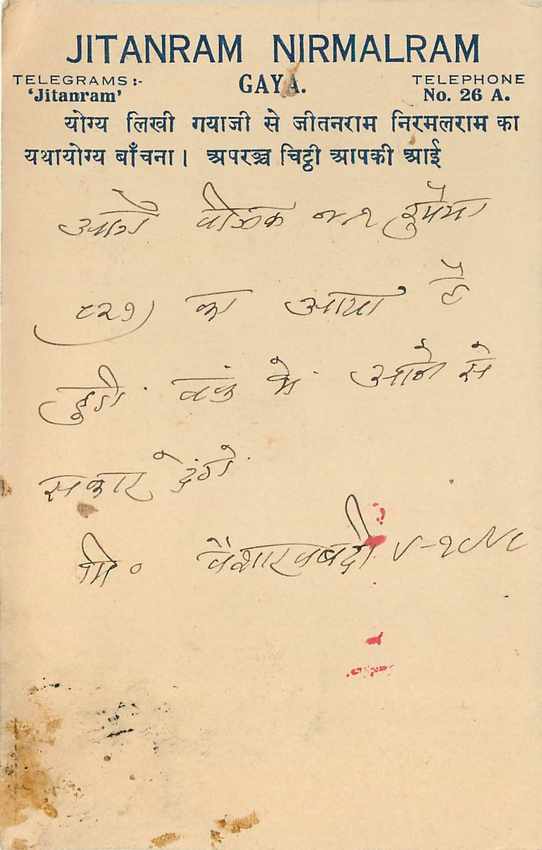 JITANRAM NIRMALRAM
TELEGRAMS :-
'Jitanram'
GAYA.
TELEPHONE
No. 26 A.
योग्य लिखी गयाजी से जीतनराम निरमलराम का
यथायोग्य बाँचना। अपरञ्च चिट्ठी आपकी आई
आगे रुपैया
का आया है
हुंडी आने से
सकार देंगे
मि० वैशाखबदी